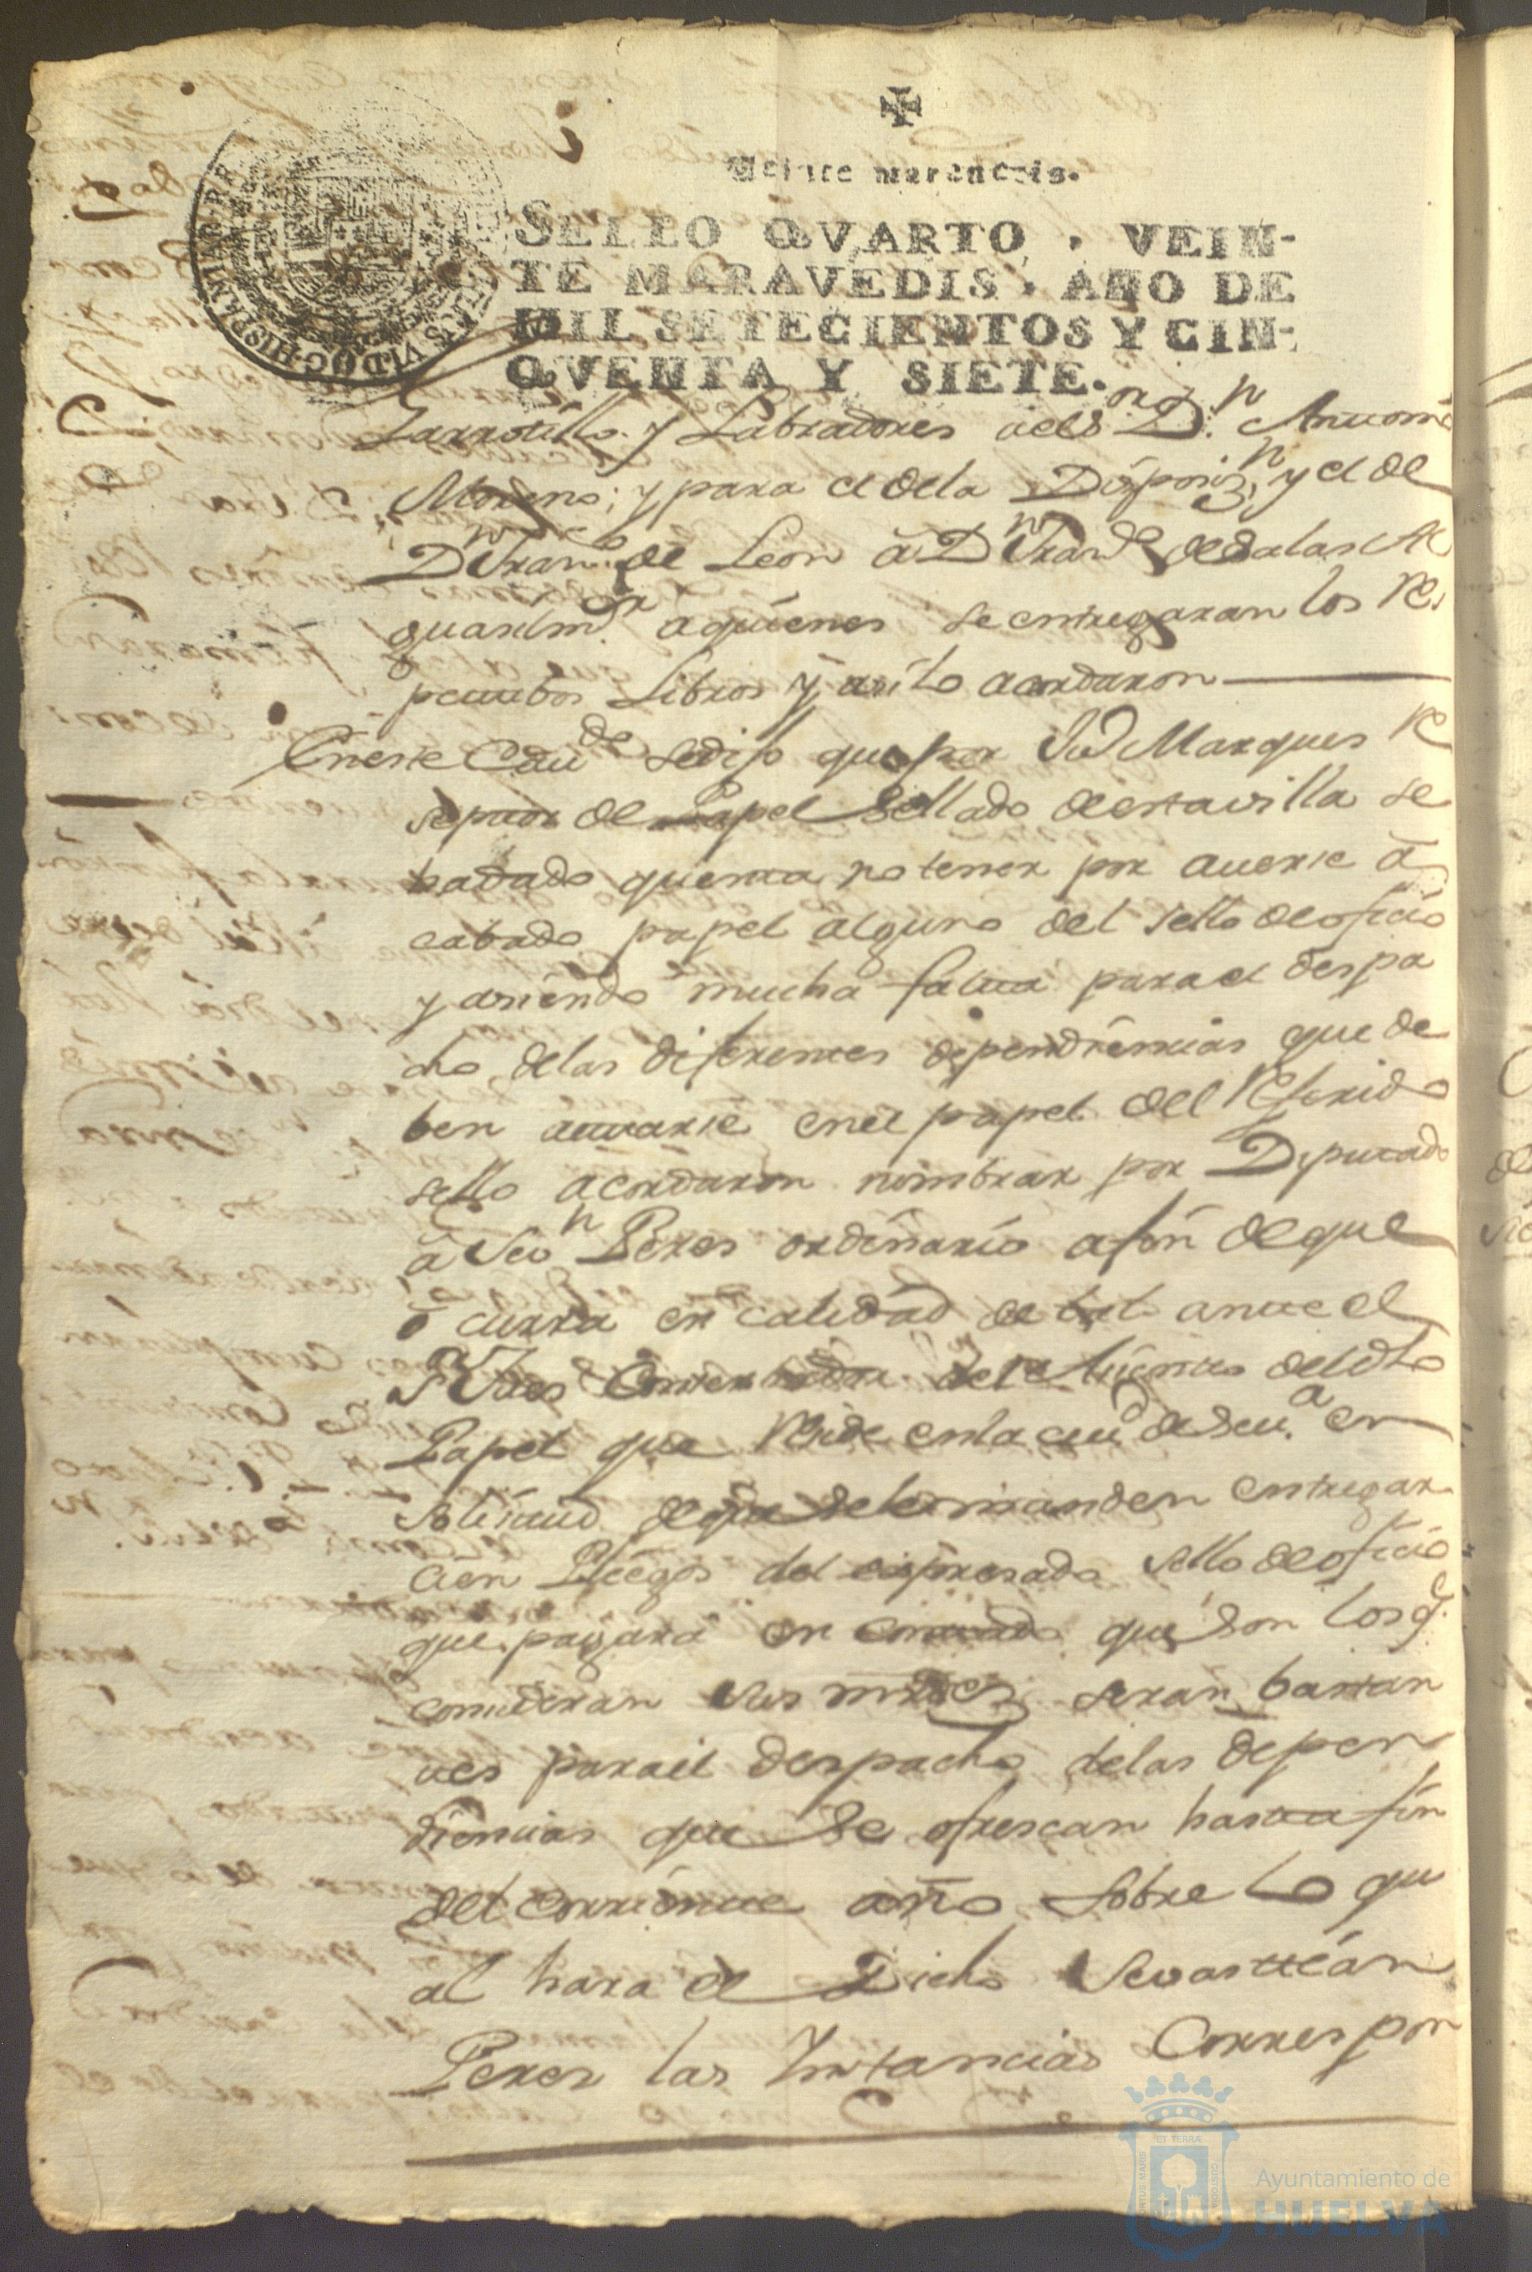 Veinte maravedis.
SELLO QVARTO, VEIN-
TE MARAVEDIS, AÑO DE
MIL SETECIENTOS Y CIN-
QVENTA Y SIETE.
HISPANIARUM
y Labradores Dn Antonio
Moreno; y para el dela Disposizn, y el de
Dn Franco de Leon â Dn Franco de Salas Al
guasil mr aquienes se entregaran los Res
pectivos Libros y asi lo acordaron
En este Cavdo se dijo que por Marques Re
septor de Papel Sellado de esta villa se
ha dado quenta no tener por averse â
cabado papel alguno del sello de oficio
y asiendo mucha falta para el despa
cho delas diferentes dependiencias que de
ben actuarse en el papel del Referido
sello acordaron nombrar por Diputado
â Sevn Peres ordinario afin de que
ôcurra en calidad de tal ante el
Sr Jues Conservador del dho
Papel que Reside en la ciud de Seva en
solicitud de que se le manden entregar
cien Pliegos del expresado sello de oficio
que pagará en contado que son los qe
consideran sus mrdes seran bastan
tes para el despacho delas depen
diencias que se ofrescan hasta fin
del corriente año sobre lo qu
al hara el Dicho Sevastian
Peres las Instancias Correspon
Ayuntamiento de
HUELVA